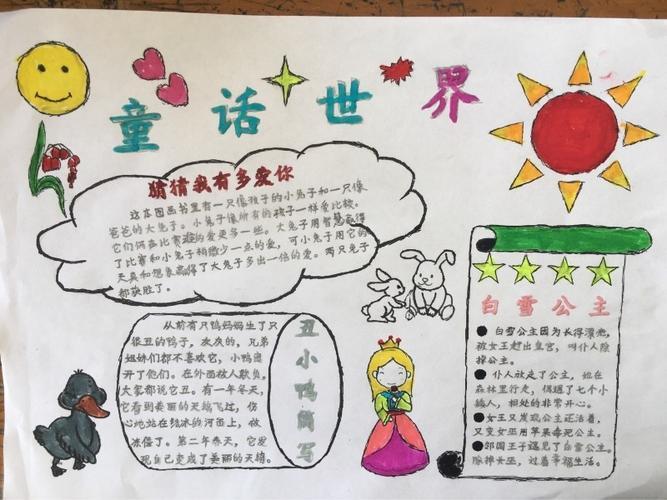 童话世界
猜猜我有多爱你
这本图画书里有一只像孩子的小兔子和一只像
爸爸的大兔子。小兔子像所有的孩子一样爱比较。
它们俩在比赛谁的爱更多一些。大兔子用智慧赢得
了比赛和小兔子稍微少一点的爱,可小兔子用它的
天真和想象赢得了大兔子多出一倍的爱。两只兔子
都获胜了。
丑小鸭简写
从前有只鸭妈妈生了只
很丑的鸭子,灰灰的,兄弟
姐妹们都不喜欢它,小鸭离
开了他们。在外面被人欺负,
大家都说它丑。有一年冬天,
它看到美丽的天鹅飞过,伤
心地站在结冰的河面上,做
冰僵了。第二年春天,它发
现自己变成了美丽的天鹅。
白雪公主
白雪公主因为长得漂亮,
被女王赶出皇宫,叫仆人除
掉公主。
仆人放走了公主,她在
森林里行走,偶遇了七个小
矮人,相处的非常开心。
女王又发现公主还活着,
又变女巫用苹果毒死公主。
邻国王子遇见了白雪公主
除掉女巫,过着幸福生活。